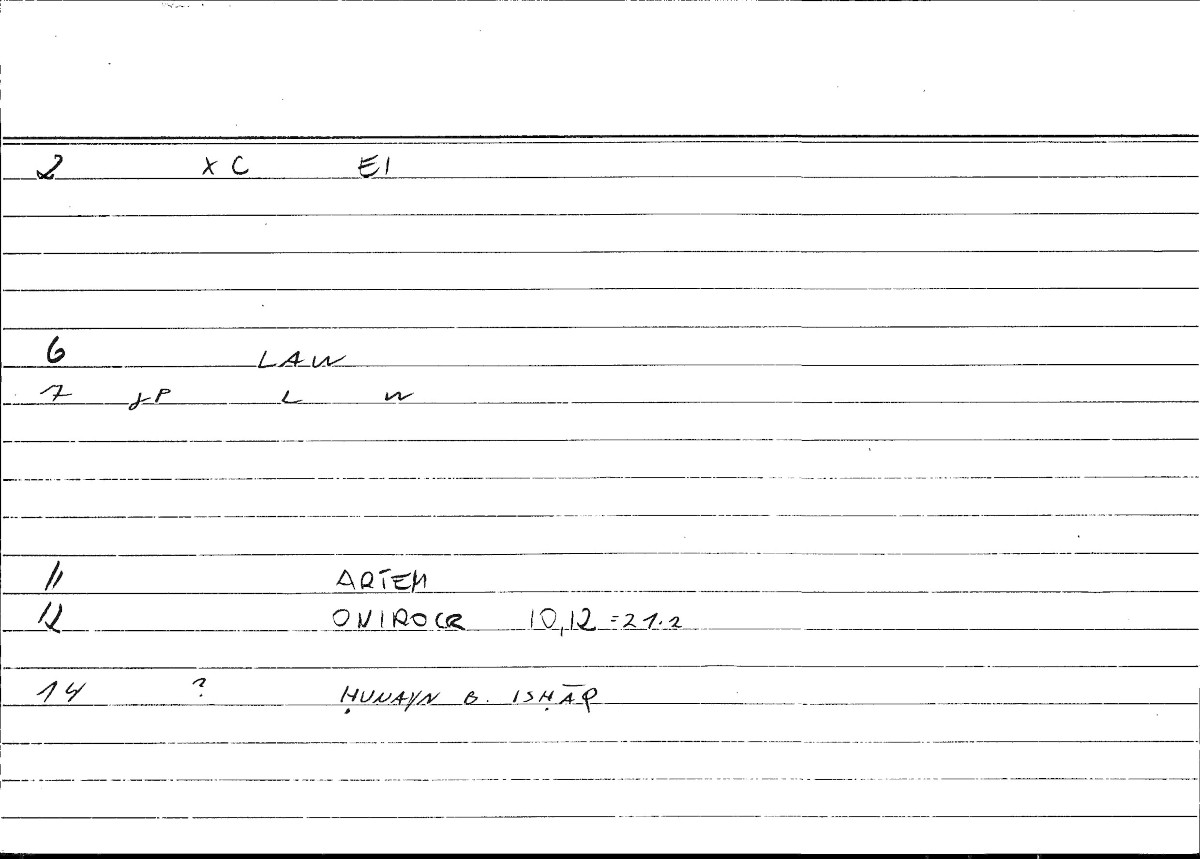 2 X C EI
6 LAW
7 JP L W
11 ARTEM
12 ONIROCR 10,12 =21.2
14 ? ḤUNAYN B. ISḤĀQ